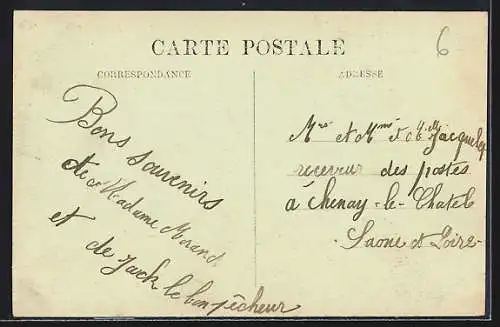 6
CARTE POSTALE
CORRESPONDANCE
ADRESSE
Bons souvenirs
de Madame Morand
et de Jack le bon pêcheur
Mr et Mme et Melle
receveur des postes
à Chenay-le-Chatel
Saone et Loire